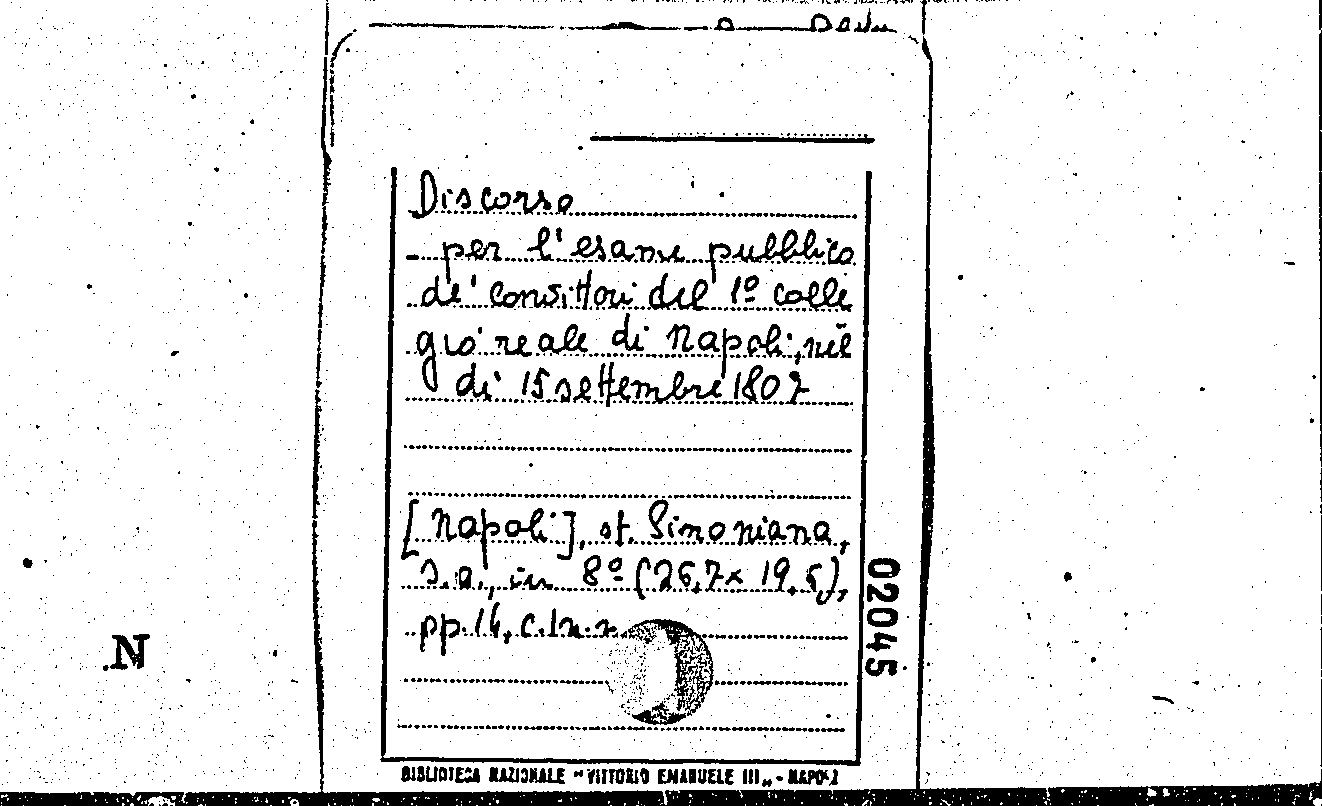 Discorso
per l'esame pubblico
de' convittori del 1º colle
gio reale di Napoli, nel
di 15 settembre 1807
[Napoli], st. Simoniana,
s.a., in 8º (26,7 x 19,5),
pp. 14, c. 1 n.n.
02045
N
BIBLIOTECA NAZIONALE "VITTORIO EMANUELE III„ - NAPOLI